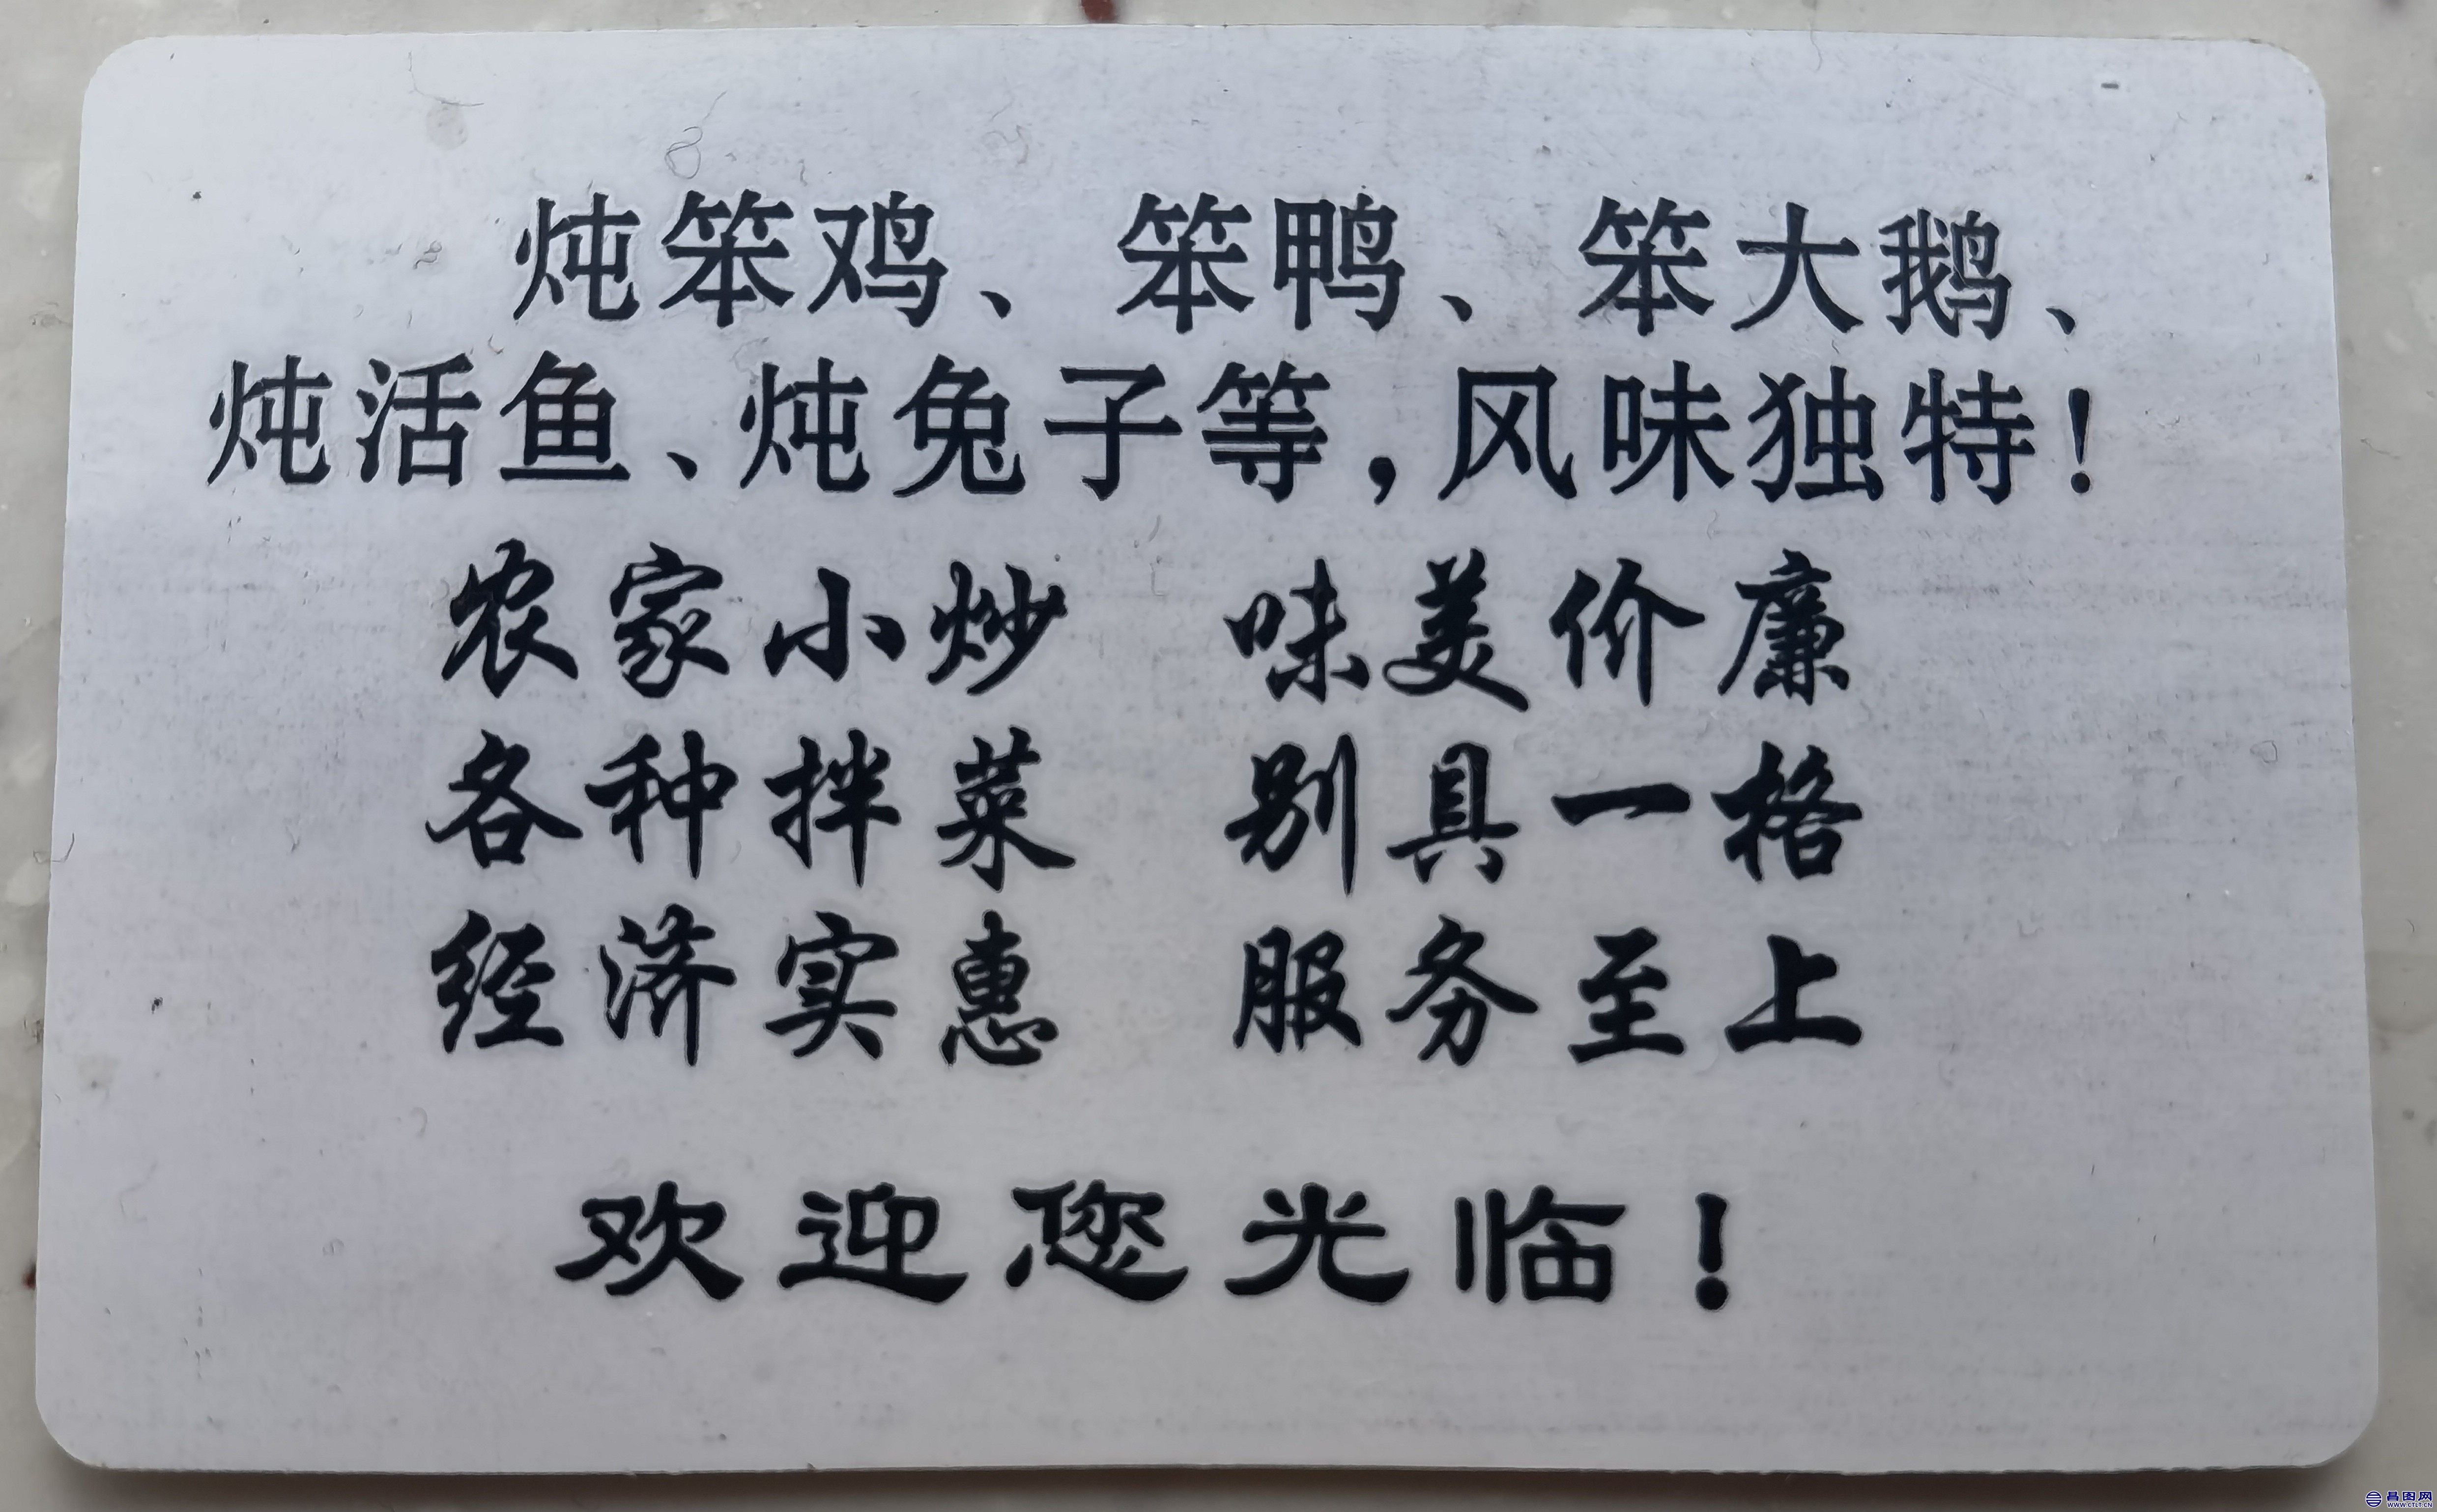 炖笨鸡、笨鸭、笨大鹅、
炖活鱼、炖兔子等,风味独特!
农家小炒 味美价廉
各种拌菜 别具一格
经济实惠 服务至上
欢迎您光临!
昌图网
WWW.CTLT.CN